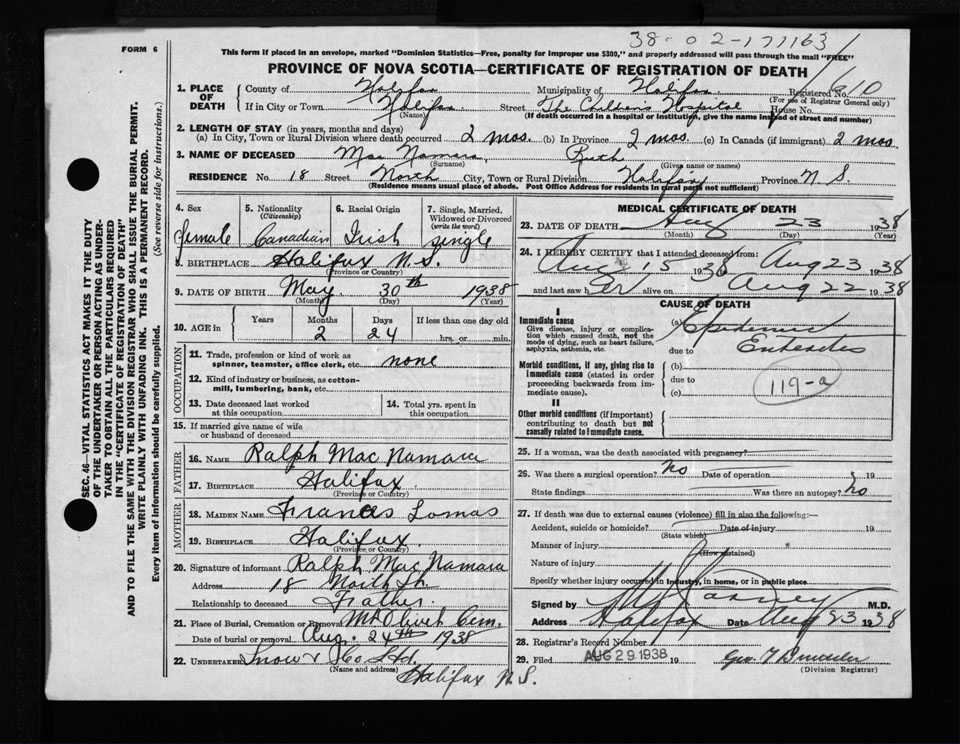 38-02-171163
FORM 6
This form if placed in an envelope, marked "Dominion Statistics—Free, penalty for improper use $300," and properly addressed will pass through the mail "FREE"
PROVINCE OF NOVA SCOTIA—CERTIFICATE OF REGISTRATION OF DEATH
1. PLACE OF DEATH
County of Halifax Municipality of Halifax Registered No. 1610
(For use of Registrar General only)
If in City or Town Halifax Street The Children's Hospital House No.
(Name) (If death occurred in a hospital or institution, give the name instead of street and number)
2. LENGTH OF STAY (in years, months and days)
(a) In City, Town or Rural Division where death occurred 2 mos. (b) In Province 2 mos. (c) In Canada (if immigrant) 2 mos
3. NAME OF DECEASED Mac Namara, Ruth
(Surname) (Given name or names)
RESIDENCE No. 18 Street North City, Town or Rural Division Halifax Province N. S.
(Residence means usual place of abode. Post Office Address for residents in rural parts not sufficient)
4. Sex female
5. Nationality (Citizenship) Canadian
6. Racial Origin Irish
7. Single, Married, Widowed or Divorced (write the word) single
8. BIRTHPLACE Halifax N.S.
(Province or Country)
9. DATE OF BIRTH May 30th 1938
(Month) (Day) (Year)
10. AGE in Years Months 2 Days 24 If less than one day old hrs. or min.
OCCUPATION
11. Trade, profession or kind of work as spinner, teamster, office clerk, etc. none
12. Kind of industry or business, as cotton-mill, lumbering, bank, etc.
13. Date deceased last worked at this occupation
14. Total yrs. spent in this occupation
15. If married give name of wife or husband of deceased
FATHER
16. NAME Ralph Mac Namara
17. BIRTHPLACE Halifax
(Province or Country)
MOTHER
18. MAIDEN NAME Frances Lomas
19. BIRTHPLACE Halifax
(Province or Country)
20. Signature of informant Ralph Mac Namara
Address 18 North St.
Relationship to deceased Father
21. Place of Burial, Cremation or Removal Mt Olivet Cem.
Date of burial or removal Aug. 24th 1938
22. UNDERTAKER Snow & Co Ltd.
(Name and address)
Halifax N.S.
MEDICAL CERTIFICATE OF DEATH
23. DATE OF DEATH Aug 23 1938
(Month) (Day) (Year)
24. I HEREBY CERTIFY that I attended deceased from:
Aug 15 1938 Aug 23 1938
and last saw her alive on Aug 22 1938
CAUSE OF DEATH
I
Immediate cause
Give disease, injury or complication which caused death, not the mode of dying, such as heart failure, asphyxia, asthenia, etc.
(a) Epidemic
due to Enteritis
Morbid conditions, if any, giving rise to immediate cause (stated in order proceeding backwards from immediate cause).
(b)
due to
(c)
119-a
II
Other morbid conditions (if important) contributing to death but not causally related to immediate cause.
25. If a woman, was the death associated with pregnancy?
26. Was there a surgical operation? No Date of operation 19
State findings Was there an autopsy? no
27. If death was due to external causes (violence) fill in also the following:—
Accident, suicide or homicide? Date of injury 19
(State which)
Manner of injury
(How sustained)
Nature of injury
Specify whether injury occurred in industry, in home, or in public place
Signed by M.D.
Address Halifax Date Aug 23 1938
28. Registrar's Record Number
29. Filed AUG 29 1938 19
(Division Registrar)
SEC. 46—VITAL STATISTICS ACT MAKES IT THE DUTY
OF THE UNDERTAKER OR PERSON ACTING AS UNDER-
TAKER TO OBTAIN ALL THE PARTICULARS REQUIRED
IN THE "CERTIFICATE OF REGISTRATION OF DEATH"
AND TO FILE THE SAME WITH THE DIVISION REGISTRAR WHO SHALL ISSUE THE BURIAL PERMIT.
WRITE PLAINLY WITH UNFADING INK. THIS IS A PERMANENT RECORD.
Every item of information should be carefully supplied. (See reverse side for instructions.)